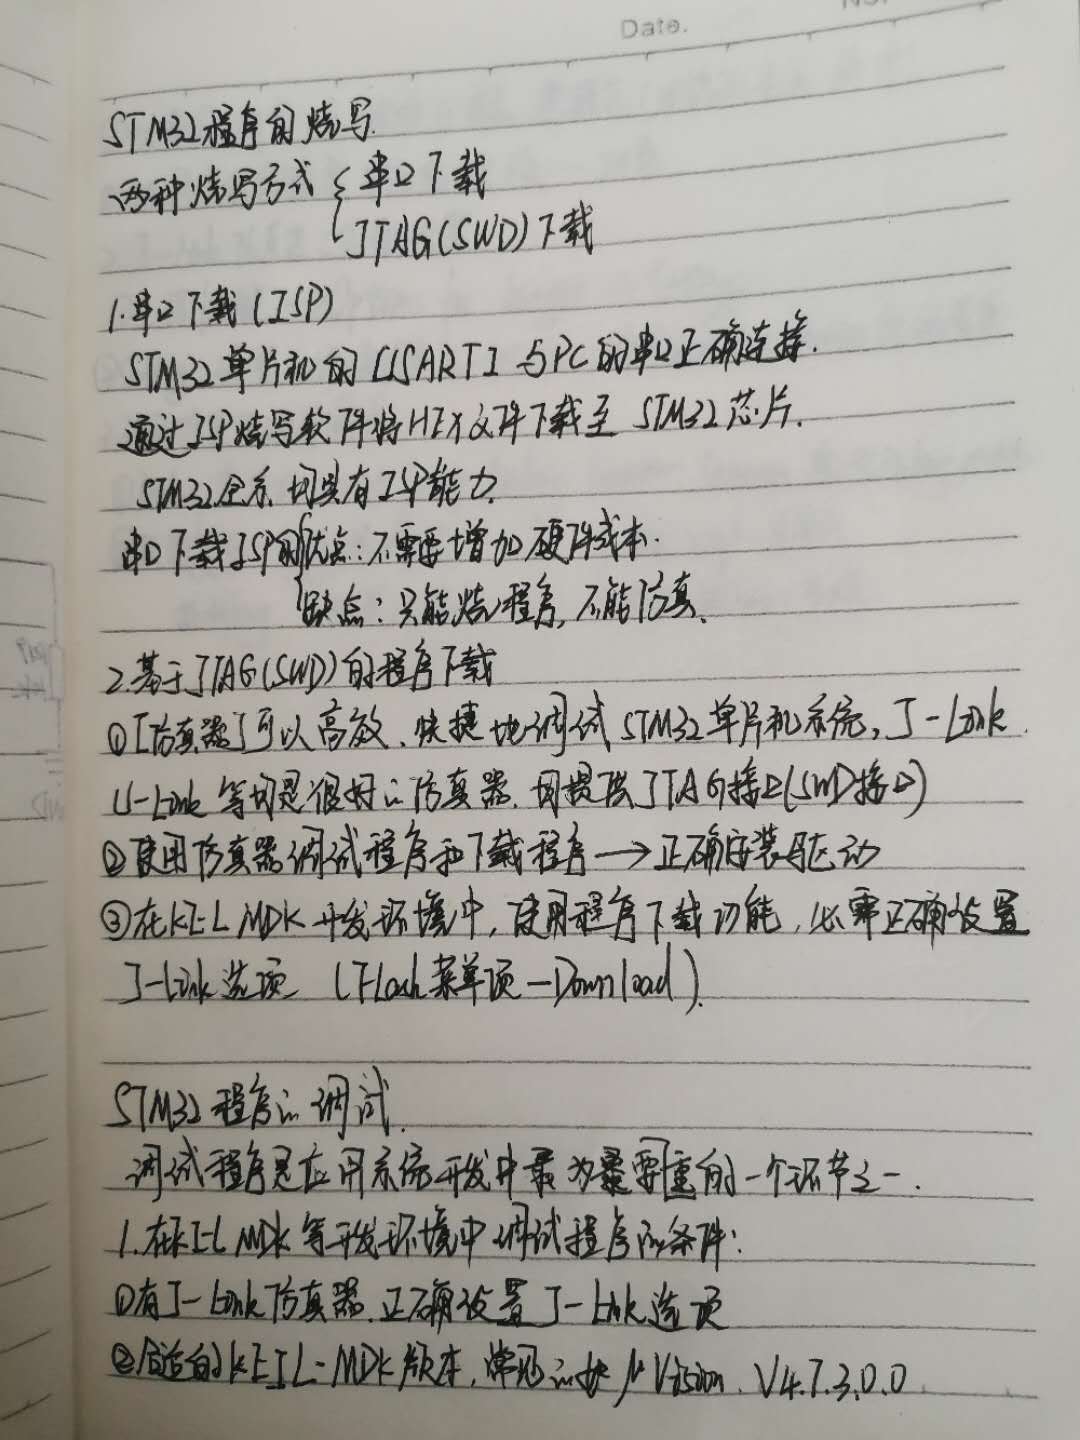 Date.
STM32程序的烧写.
两种烧写方式 { 串口下载
JTAG(SWD)下载
1.串口下载(ISP)
STM32单片机的USART1与PC的串口正确连接.
通过ISP烧写软件将HEX文件下载至STM32芯片.
STM32全系均具有ISP能力.
串口下载ISP的{优点:不需要增加硬件成本.
缺点:只能烧程序,不能仿真.
2.基于JTAG(SWD)的程序下载
①[仿真器]可以高效、快捷地调试STM32单片机系统,J-Link
U-Link等均是很好的仿真器.均提供JTAG接口(SWD接口)
②使用仿真器调试程序和下载程序→正确安装驱动
③在KEIL MDK开发环境中,使用程序下载功能,必需正确设置
J-Link选项 (Flash菜单项-Download).
STM32程序的调试.
调试程序是应用系统开发中最为重要的一个环节之一.
1.在KEIL MDK等开发环境中调试程序的条件:
①有J-Link仿真器.正确设置J-Link选项
②合适的KEIL-MDK版本,常见的就μVision.V4.7.3.0.0